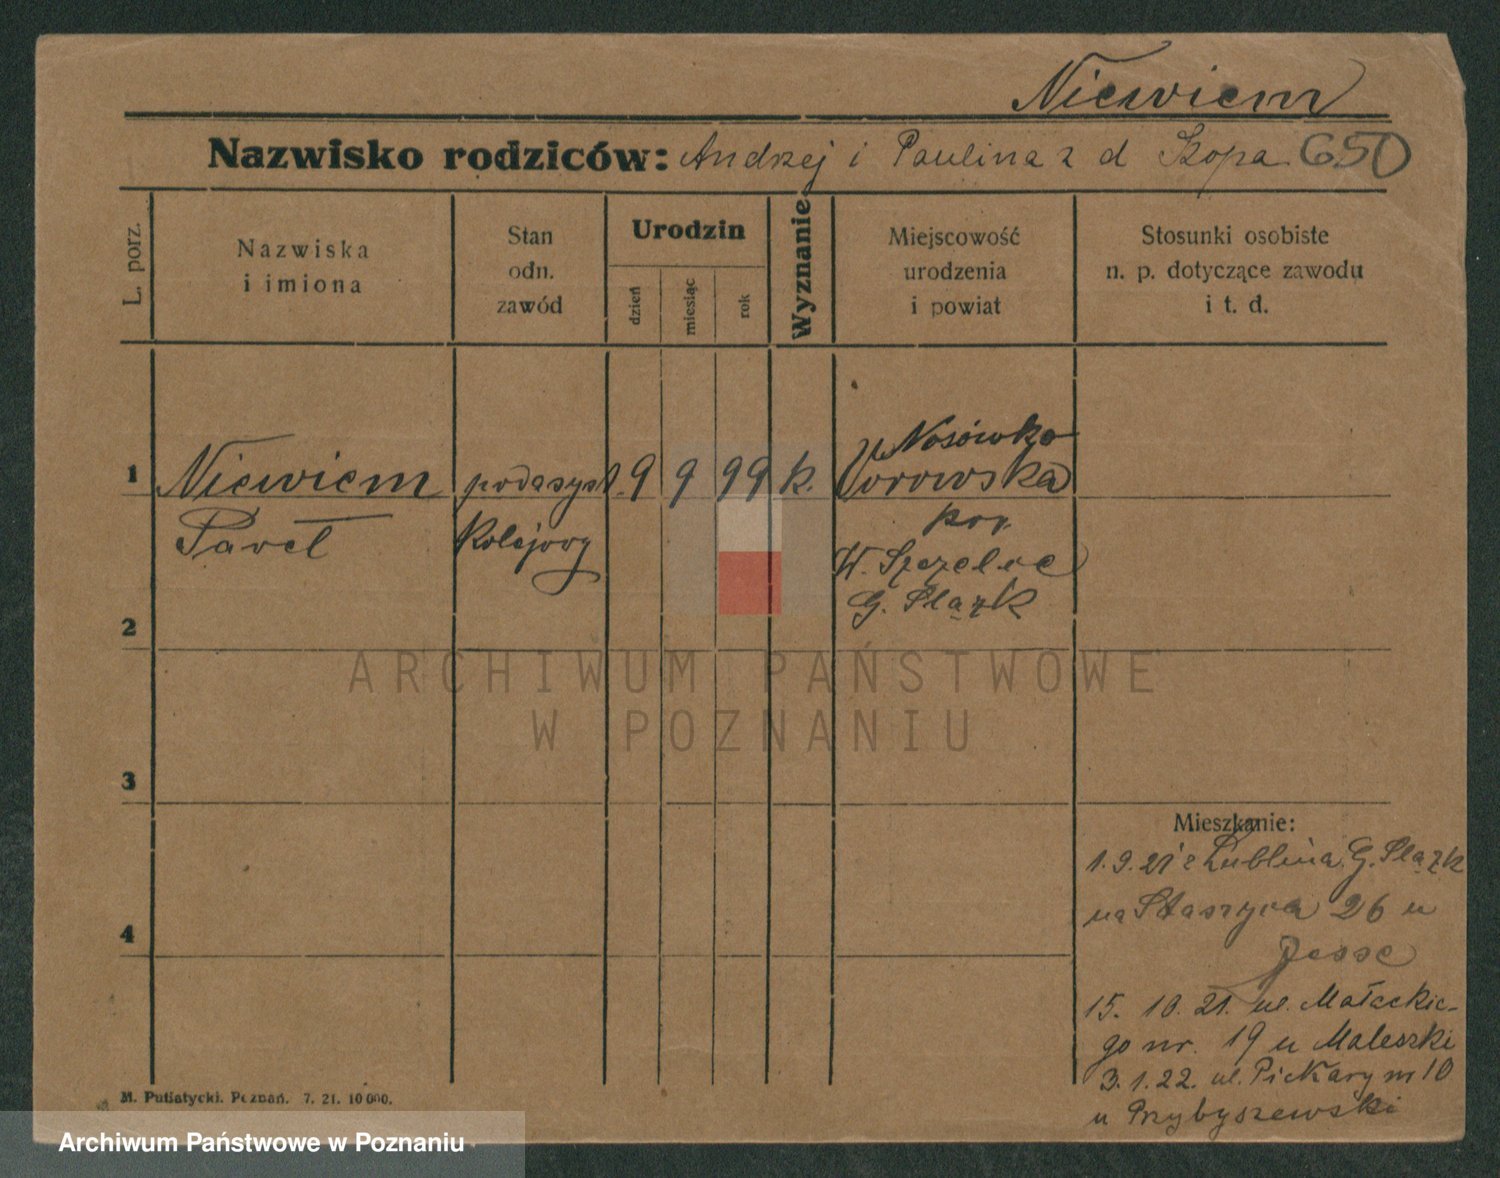 Niewiem
Nazwisko rodziców: Andrzej i Paulina z d Kopa 650
L. porz.
Nazwiska
i imiona
Stan
odn.
zawód
Urodzin
dzień
miesiąc
rok
Wyznanie
Miejscowość
urodzenia
i powiat
Stosunki osobiste
n. p. dotyczące zawodu
i t. d.
1
Niewiem
Paveł
podasyst.
Kolejowy
9 9 99
k.
Nosówka
pow.
W.
G. Slązk
2
3
4
Mieszkanie:
1.9.21 z Lublina G. Slązk
na Staszyca 26 u
Jesse
15. 10. 21. ul. Małeckie-
go nr. 19 u Maleszki
3.1.22. ul. Piekary nr 10
u Przybyszewski
M. Putiatycki. Poznań. 7. 21. 10 000.
ARCHIWUM PAŃSTWOWE
W POZNANIU
Archiwum Państwowe w Poznaniu